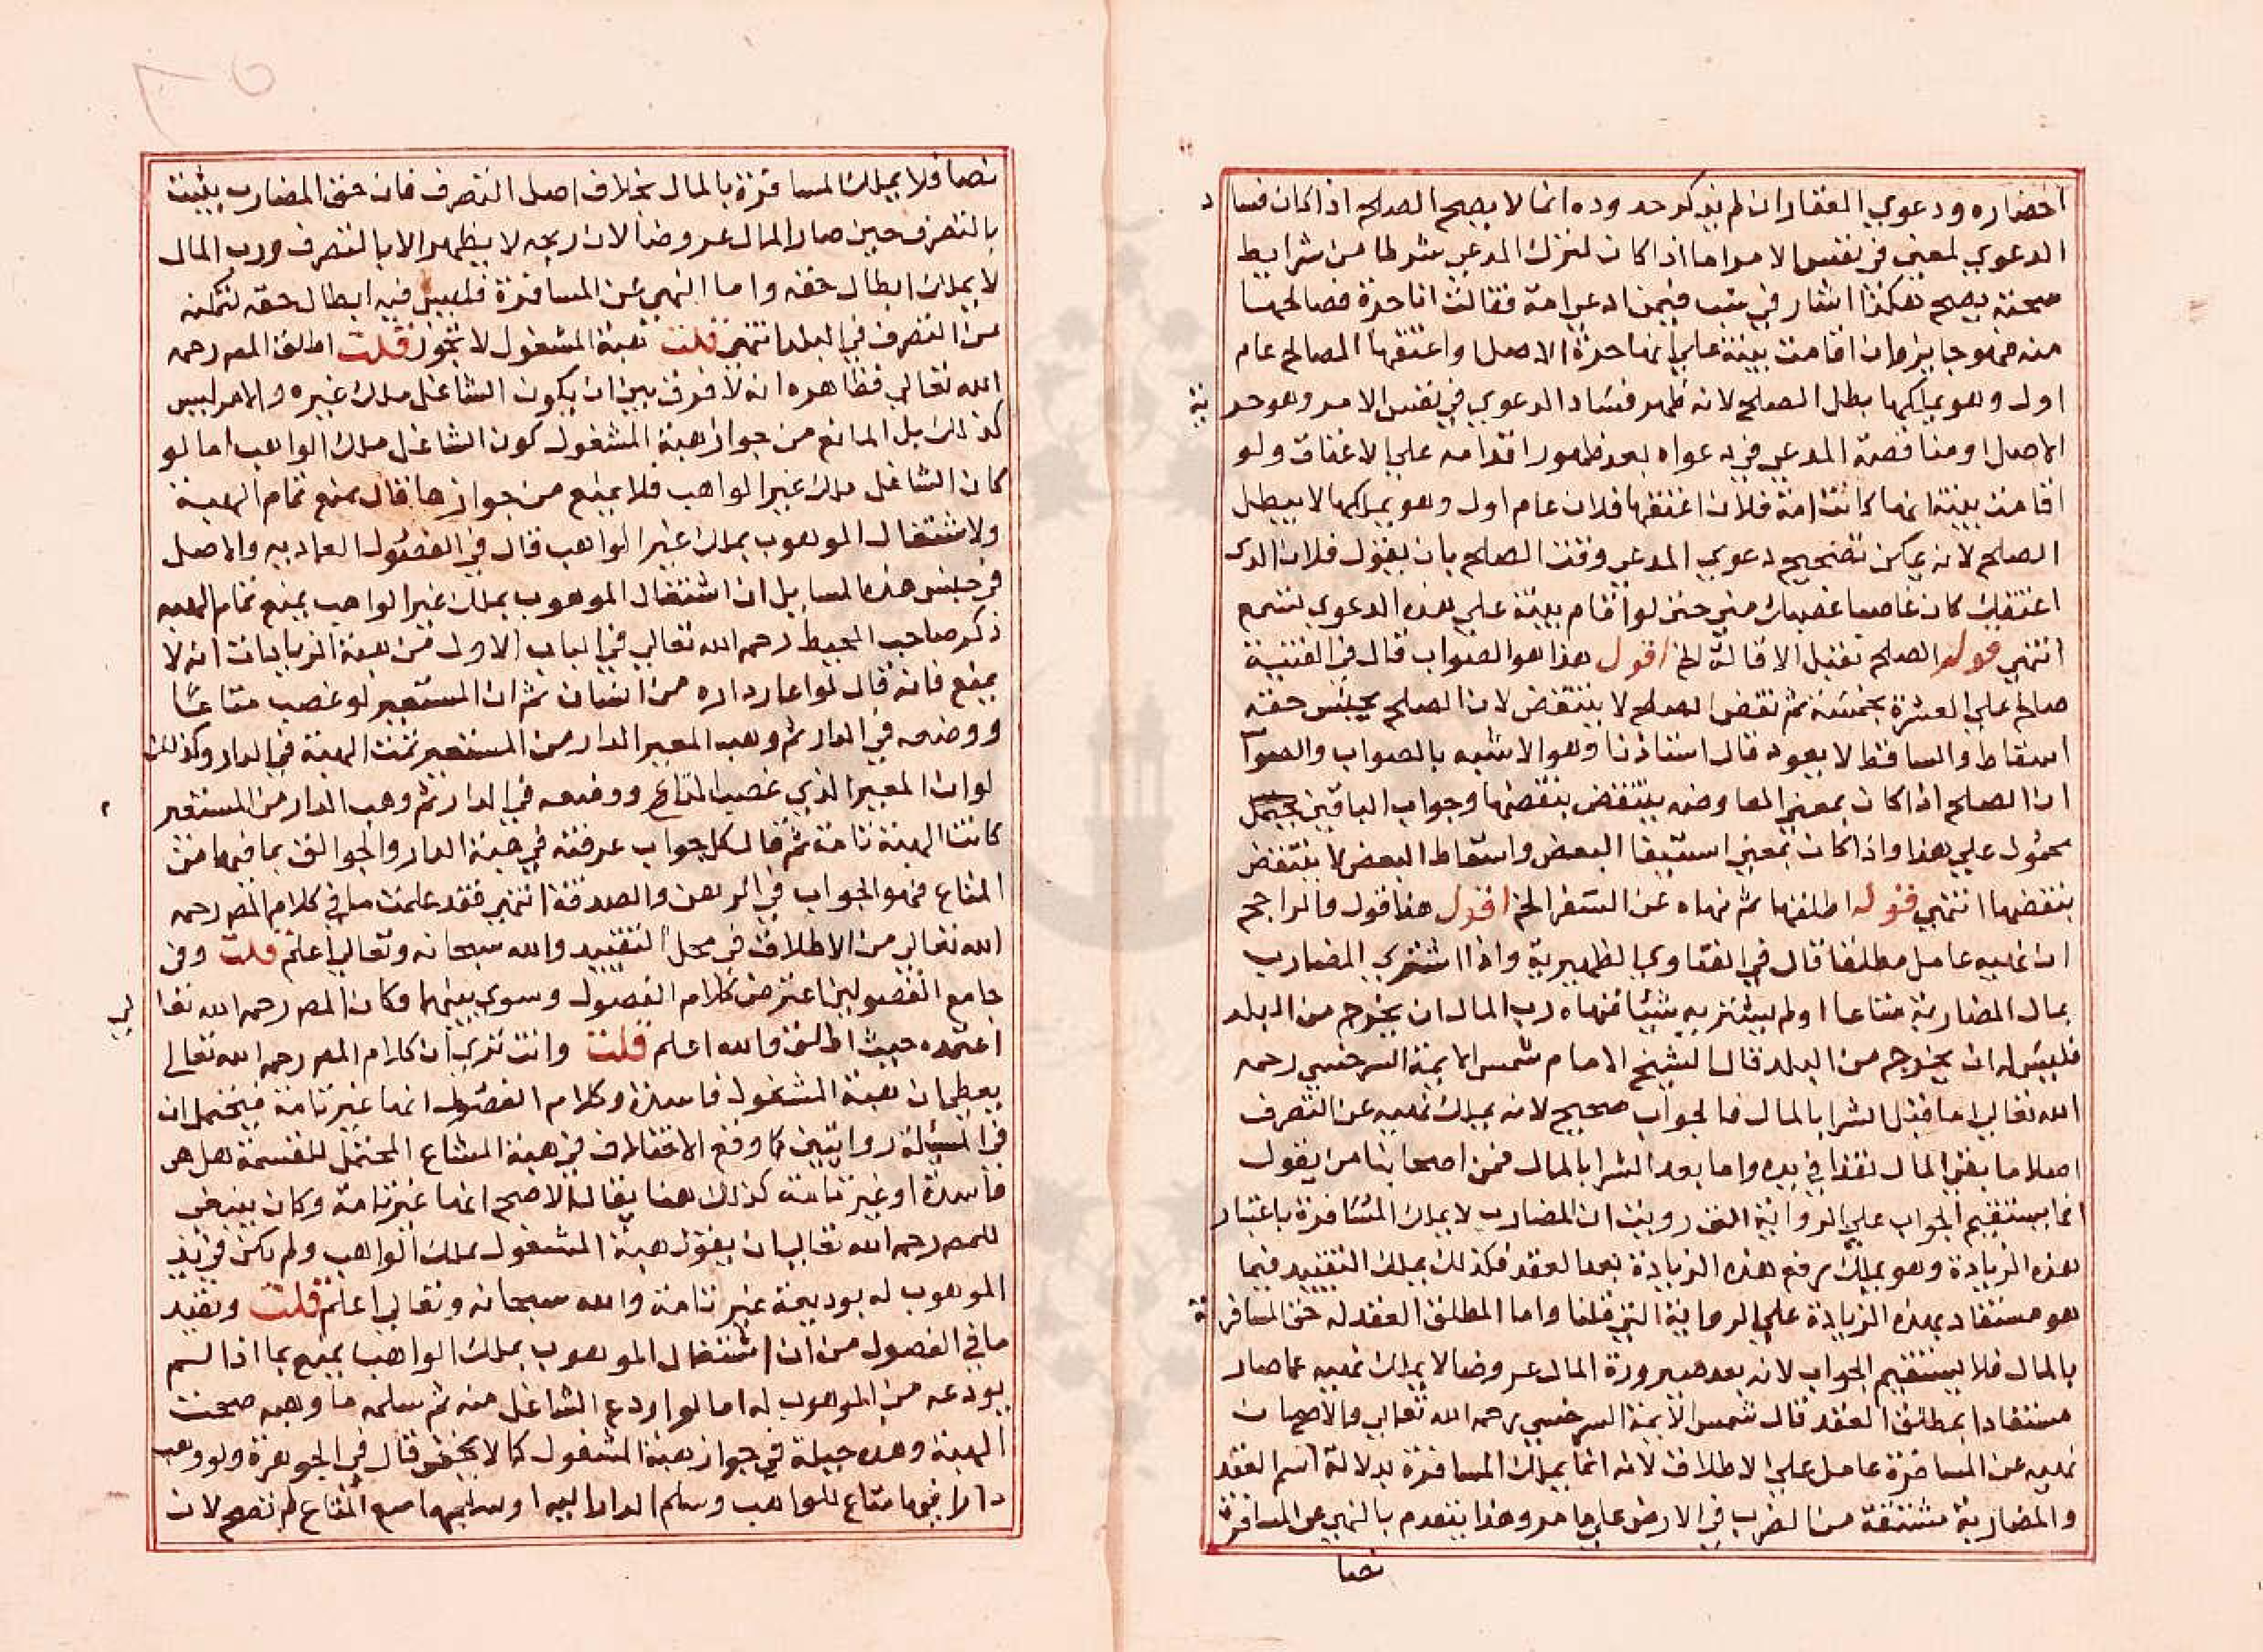 احضاره ودعوي العقار ان لم يذكر حدوده انما لا يصح الصلح اذا كان فساد
الدعوي لمعني في نفس الامر اما اذا كان لترك المدعي شرطا من شرايط
صحته يصح هكذا اشار في فيمن ادعي امة فقالت انا حرة فصالحها
منه فهو جايز وان اقامت بينة علي انها حرة الاصل او اعتقها المصالح عام
اول وهو يملكها بطل الصلح لانه ظهر فساد الدعوي في نفس الامر وهو حرية
الاصل او مناقضة المدعي في دعواه بعد ظهور اقدامه علي الاعتاق ولو
اقامت بينة انها كانت امة فلان اعتقها فلان عام اول وهو يملكها لا يبطل
الصلح لانه يمكن تصحيح دعوي المدعي وقت الصلح بان يقول فلان الذي
اعتقك كان غاصبا غصبك مني حتي لو اقام بينة علي هذه الدعوي تسمع
انتهي قوله الصلح تقبل الاقالة الخ اقول هذا هو الصواب قال في القنية
صالح علي العشرة بخمسة ثم نقض الصلح لا ينتقض لان الصلح بجنس حقه
اسقاط والساقط لا يعود قال استاذنا وهو الاشبه بالصواب والصوا
ان الصلح اذا كان بمعني المعاوضه ينتقض بنقضها وجواب الباقين يحمل
محمول علي هذا واذا كان بمعني استيفا البعض واسقاط البعض لا ينتقض
بنقضها انتهي قوله اطلقها ثم نهاه عن السفر الخ اقول هذا قول والراجح
ان نهيه عامل مطلقا قال في الفتاوي الظهيرية واذا اشتري المضارب
بمال المضاربة متاعا او لم يشتر به شيئا فنهاه رب المال ان يخرج من البلد
فليس له ان يخرج من البلد قال الشيخ الامام شمس الايمة السرخسي رحمه
الله تعالي اما قبل الشرا بالمال فالجواب صحيح لانه يملك نهيه عن التصرف
اصلا ما بقي المال نقدا في يده واما بعد الشرا بالمال فمن اصحابنا من يقول
انما يستقيم الجواب علي الرواية التي رويت ان المضارب لا يملك المسافرة باعتبار
هذه الزيادة وهو يملك رفع هذه الزيادة بعد العقد فكذلك يملك التقييد فيما
هو مستفاد بهذه الزيادة علي الرواية التي قلنا واما المطلق العقد له حق المسافرة
بالمال فلا يستقيم الجواب لانه بعد صيرورة المال عروضا لا يملك نهيه عما صار
مستفادا بمطلق العقد قال شمس الايمة السرخسي رحمه الله تعالي والاصح ان
نهيه عن المسافرة عامل علي الاطلاق لانه انما يملك المسافرة بدلالة اسم العقد
والمضاربة مشتقة من الضرب في الارض علي ما مر وهذا ينعدم بالنهي عن المسافرة
نصا
نصا فلا يملك المسافرة بالمال بخلاف اصل التصرف فان حق المضارب يثبت
بالتصرف حين صار المال عروضا لان ربحه لا يظهر الا بالتصرف ورب المال
لا يملك ابطال حقه واما النهي عن المسافرة فليس فيه ابطال حقه لتمكنه
من التصرف في البلد انتهي قلت هبة المشغول لا تجوز قلت اطلق المص رحمه
الله تعالي فظاهره انه لا فرق بين ان يكون الشاغل ملك غيره والامر ليس
كذلك بل المانع من جواز هبة المشغول كون الشاغل ملك الواهب اما لو
كان الشاغل ملك غير الواهب فلا يمنع من جوازها قال يمنع تمام الهبة
ولاشتغال الموهوب بملك غير الواهب قال في الفصول العماديه والاصل
في جنس هذه المسايل ان اشتغال الموهوب بملك غير الواهب يمنع تمام الهبه
ذكر صاحب المحيط رحمه الله تعالي في الباب الاول من هبة الزيادات انه لا
يمنع فانه قال لو اعار داره من انسان ثم ان المستعير لو غصب متاعا
ووضعه في الدار ثم وهب المعير الدار من المستعير تمت الهبة في الدار وكذلك
لو ان المعير الذي غصب المتاع ووضعه في الدار ثم وهب الدار من المستعير
كانت الهبة تامة ثم قال كل جواب عرفته في هبة الدار والجوالق بما فيها من
المتاع فهو الجواب في الرهن والصدقة انتهي فقد علمت ما في كلام المص رحمه
الله تعالي من الاطلاق في محل التقييد والله سبحانه وتعالي اعلم قلت وفي
جامع الفصولين اعترض كلام الفصول وسوي بينهما وكان المص رحمه الله تعالي
اعتمده حيث اطلق والله اعلم قلت وانت تري ان كلام المص رحمه الله تعالي
يعطي ان هبة المشغول فاسدة وكلام الفصول انها غير تامة فيحتمل ان
في المسيلة روايتين كما وقع الاختلاف في هبة المشاع المحتمل للقسمة هل هي
فاسدة او غير تامة كذلك هنا يقال الاصح انها غير تامة وكان ينبغي
للمص رحمه الله تعالي ان يقول هبة المشغول بملك الواهب ولم يكن في يد
الموهوب له بوديعة غير تامة والله سبحانه وتعالي اعلم قلت وتقيد
ما في الفصول من ان اشتغال الموهوب بملك الواهب يمنع بما اذا لم
يودعه من الموهوب له اما لو اودع الشاغل منه ثم سلمه ما وهبه صحت
الهبة وهذه حيلة في جواز هبة المشغول كما لا يخفي قال في الجوهرة ولو وهب
دارا فيها متاع للواهب وسلم الدار اليه او سلمها مع المتاع لم تصح لان